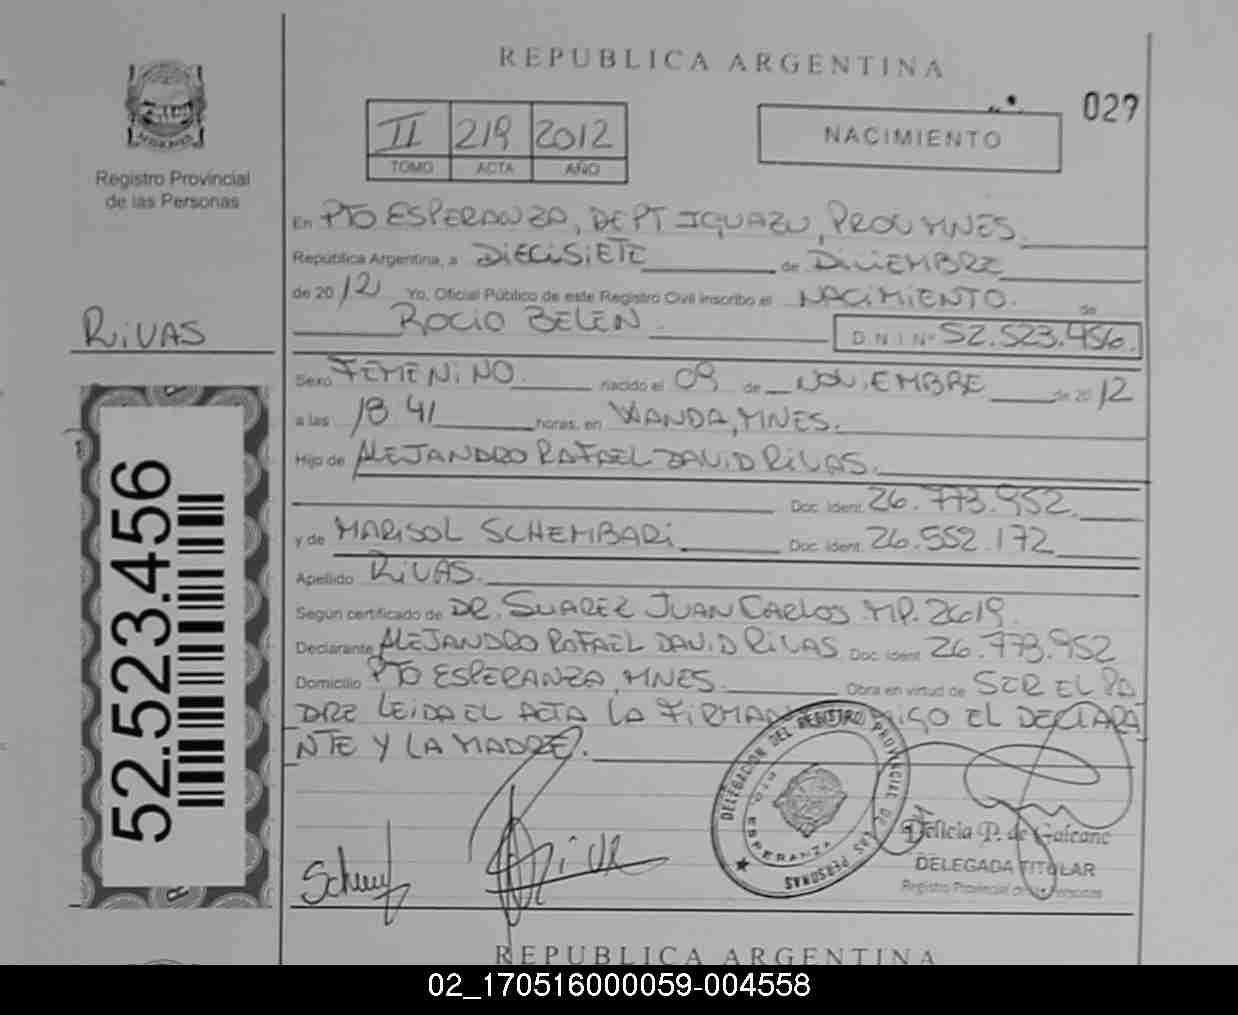 REPUBLICA ARGENTINA
029
II 219 2012
TOMO ACTA AÑO
NACIMIENTO
MISIONES
Registro Provincial
de las Personas
En PTO ESPERANZA, DEPT IGUAZU, PROV MNES.
República Argentina, a DIECISIETE de DICIEMBRE
de 2012 Yo, Oficial Público de este Registro Civil inscribo el NACIMIENTO. de
ROCIO BELEN D.N.I Nº 52.523.456.
RIVAS
Sexo FEMENINO. nacido el 09 de NOVIEMBRE de 2012
a las 18 41 horas, en WANDA, MNES.
Hijo de ALEJANDRO RAFAEL DAVID RIVAS.
Doc. Ident. 26.773.952
y de MARISOL SCHEMBARI Doc. Ident. 26.552.172
Apellido RIVAS.
Según certificado de DR. SUAREZ JUAN CARLOS MP. 2619.
Declarante ALEJANDRO RAFAEL DAVID RIVAS Doc. Ident. 26.773.952
Domicilio PTO ESPERANZA, MNES. Obra en virtud de SER EL PA
DRE LEIDA EL ACTA LA FIRMAN EL DECLARA
NTE Y LA MADRE.
52.523.456
DELEGACION DEL REGISTRO PROVINCIAL DE LAS PERSONAS
PTO. ESPERANZA
Delicia P. de Galeano
DELEGADA TITULAR
Registro Provincial de las Personas
REPUBLICA ARGENTINA
02_170516000059-004558